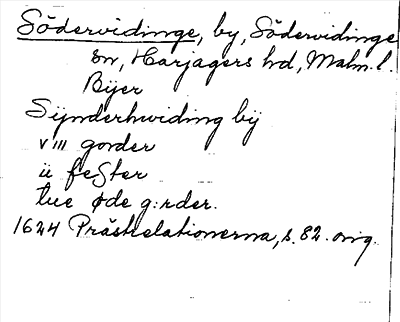 Södervidinge, by, Södervidinge
sn, Harjagers hd, Malm. l.
Bijer
Sijnderhwiding bij
v iii gorder
ii fester
tue øde g:rder.
1624 Prästrelationerna, s. 82. orig.